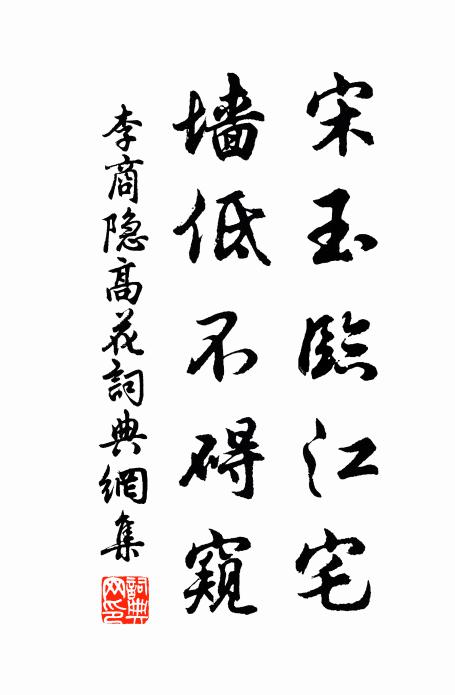 宋玉臨江宅
墙低不碍窺
李商隐高花詞典網集
詞典网印